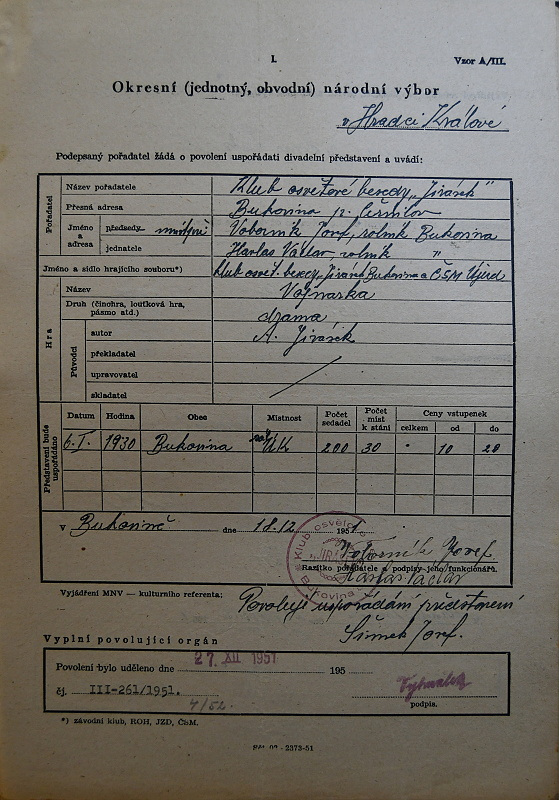 I.
Vzor A/III.
Okresní (jednotný, obvodní) národní výbor
v Hradci Králové
Podepsaný pořadatel žádá o povolení uspořádati divadelní představení a uvádí:
Pořadatel
Název pořadatele Klub osvětové besedy „Jirásek"
Přesná adresa Bukovina p. Černilov
Jméno a adresa
předsedy Voborník Josef, rolník Bukovina
jednatele Harlas Václav, rolník "
Jméno a sídlo hrajícího souboru*) klub osvět. besedy Jirásek Bukovina a ČSM Újezd
Hra
Název Vojnarka
Druh (činohra, loutková hra, pásmo atd.) drama
Původci
autor A. Jirásek
překladatel
upravovatel
skladatel
Představení bude uspořádáno
Datum Hodina Obec Místnost Počet sedadel Počet míst k stání Ceny vstupenek
celkem od do
6.I. 1930 Bukovina 200 30 10 20
V Bukovině dne 18.12 1951
Klub osvětové
Bukovina
Voborník Josef
Razítko pořadatele a podpisy jeho funkcionářů.
Harlas Václav
Vyjádření MNV — kulturního referenta: Povoluje uspořádání představení
Šimek Josef.
Vyplní povolující orgán
Povolení bylo uděleno dne 27. XII 1951 195
čj. III-261/1951.
4/52.
podpis.
*) závodní klub, ROH, JZD, ČSM.
2373-51